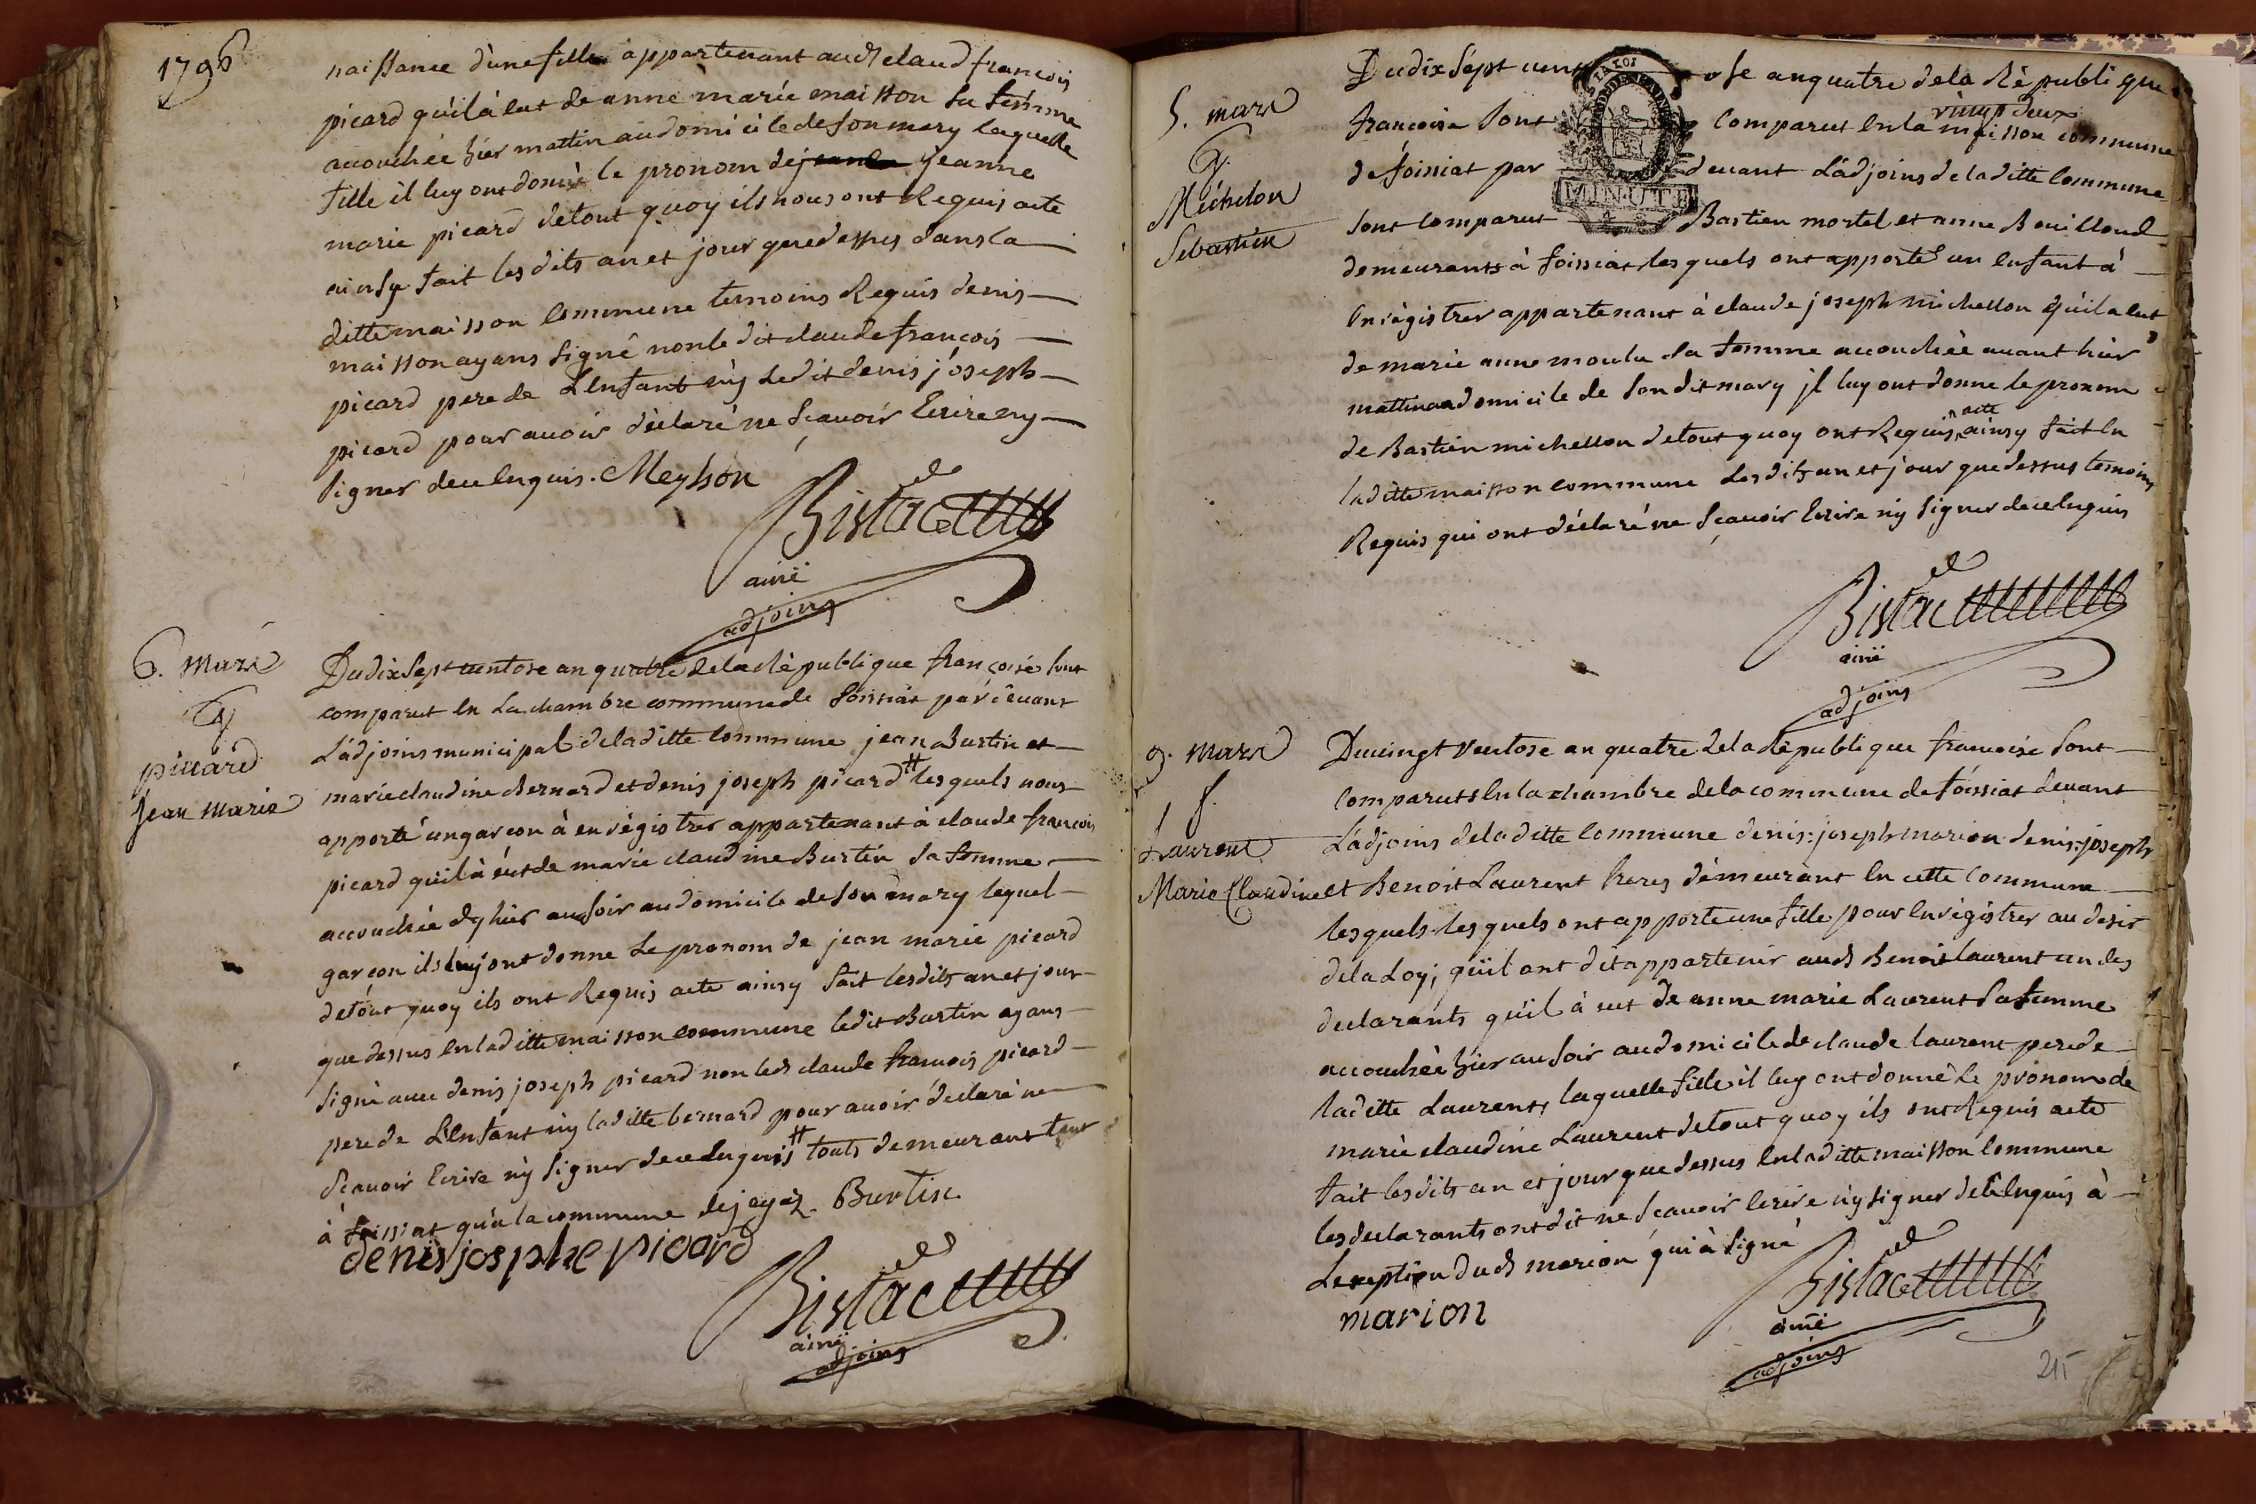 1796
naissance d'une fille appartenant audt claud françois
picard qu'il à eut de anne marie maisson sa femme
accouchée hier mattin au domicile de son mary laquelle
fille il luy ont donné le pronom de jeanne
marie picard de tout quoy ils nous ont Requis acte
ainsy fait les dits an et jour que dessus dans la
ditte maisson commune temoins Requis denis
maisson ayans signé non le dit claude françois
picard pere de L'enfant ny ledit denis joseph
picard pour avoir déclaré ne sçavoir Ecrire ny
signer de ce enquis. Meyson
Bistac
ainé
adjoins
6. mars
G
picard
Jean Marie
Du dix sept ventose an quatre de la Republique françoise sont
comparut en La chambre commune de foissiat par devant
L'adjoins municipal de laditte commune jean Burtin et
marie claudine Bernard et denis joseph picard # lesquels nous
apporté un garcon à enrégistrer appartenant à claude françois
picard qu'il à eut de marie claudine Burtin sa femme
accouchée dhier au soir au domicile de son mary lequel
garcon ils luy ont donne Le pronom de jean marie picard
de tout quoy ils ont Requis acte ainsy fait lesdits an et jour
que dessus en laditte maisson commune ledit Burtin ayans
signé avec denis joseph picard non ledt claude francois picard
pere de L'enfant ny laditte bernard pour avoir déclaré ne
sçavoir Ecrire ny signer de ce enquis # touts demeurant tant
à foissiat qu'a la commune de jayaz. Burtin
denis josphe picard
Bistac
ainé
adjoins
5. mars
G.
Michelon
Sebastien
Du dix sept vent ose an quatre de la Républi que
francoise sont comparut en la maisson commune
vingt deux
de foissiat par devant L'adjoins de laditte commune
sont comparut Bastien mortel et anne Bouilloud
demeurants à foissiat lesquels ont apporté un enfant à
enrégistrer appartenant à claude joseph michellon qu'il a eut
de marie anne moulu sa femme accouchée avant hier
mattin au domicile de son dit mary jl luy ont donne le pronom
de Bastien michellon de tout quoy ont Requis acte ainsy fait en
laditte maisson commune Les dits an et jour que dessus temoins
Requis qui ont déclaré ne sçavoir Ecrire ny signer de ce enquis
Bistac
ainé
adjoins
9. mars
f.
Laurent
Marie Claudine
Du vingt ventose an quatre de la République francoise sont
comparuts en la chambre de la commune de foissiat devant
L'adjoins de laditte commune denis: joseph marion denis: joseph
et Benoit Laurent freres démeurant en cette commune
lesquels lesquels ont apporte une fille pour enrégistrer au desir
de la Loy; qu'il ont dit appartenir audt Benoit laurent un des
declarants qu'il à eut de anne marie Laurent sa femme
accouchée hier au soir au domicile de claude laurent pere de
laditte Laurent, laquelle fille il luy ont donné Le pronom de
marie claudine Laurent de tout quoy ils ont Requis acte
fait lesdits an et jour que dessus en laditte maisson commune
les declarants ont dit ne sçavoir Ecrire ny signer de ce enquis à
L'exeption dudt marion qui à signé
marion
Bistac
ainé
adjoins
215
LA LOI
MINUTE